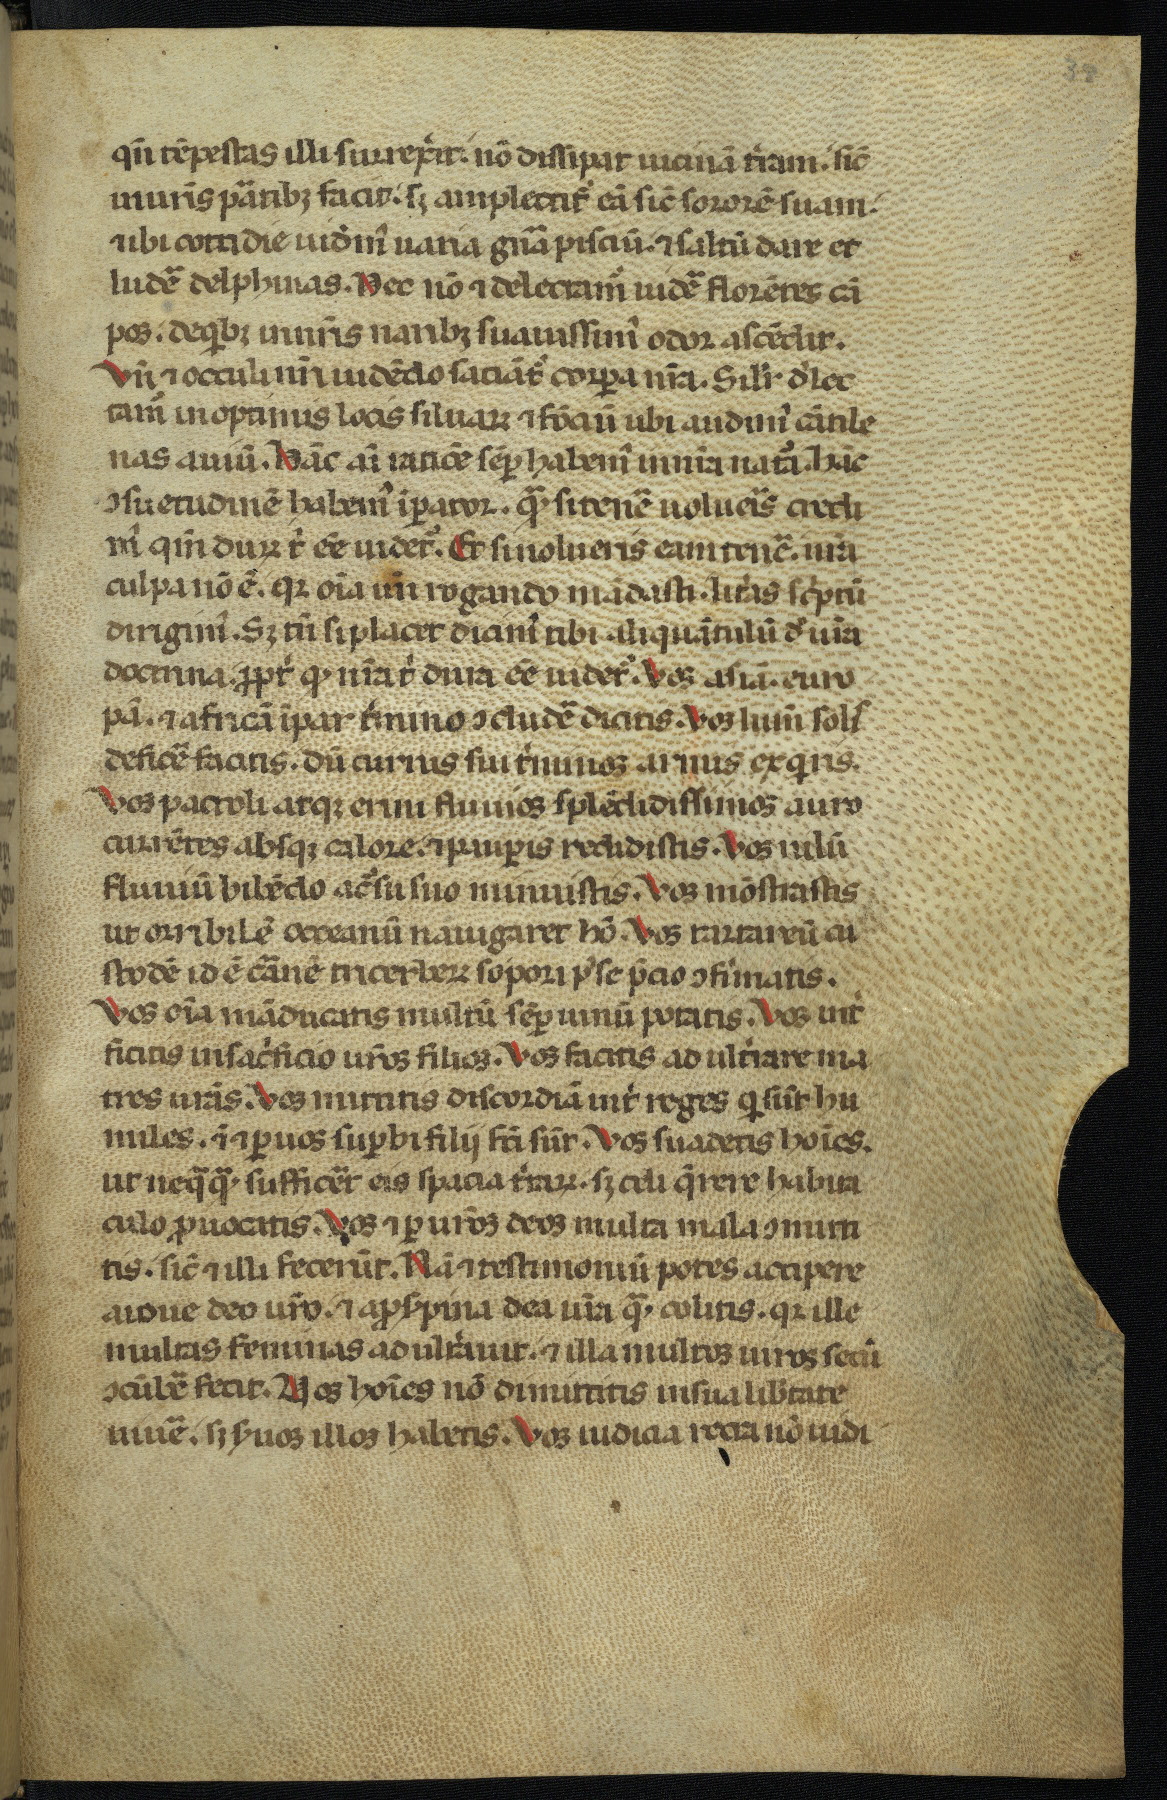 37
qñ tẽpestas illi surrexͥit. nõ dissipat uicinã t̾ram. sic̃
in uris̃ partibꝫ facit. sꝫ amplectit᷑ eã sic̃ sororẽ suam.
⁊ ubi cottidie uidem᷑ uaria gñã pisciũ. ⁊ saltũ dare et
ludẽ delphinas. Nec nõ ⁊ delectam᷑ uidẽ florẽtes cã
pos. de qͥbꝫ in nr̃is naribꝫ suauissim᷑ odor ascẽdit.
Vñ ⁊ occuli nr̃i uidẽdo saciãt᷑ corꝑa nr̃a. Silr̃ delec
tam᷑ in optimis locis siluaꝝ ⁊ fõciũ ubi audim᷑ cãtile
nas auiũ. Hãc aũ racõe sẽꝑ habem᷑ in nr̃a natͣ. hãc
ↄsuetudinẽ habem᷑ iꝑator. qͣ si tenẽ uolueis̃ credi
m᷑ qm̃ duꝝ t᷑ eẽ uidet᷑. Et si nolueris eam tenẽ. nr̃a
culpa nõ ẽ. qꝛ oĩa uñ rogando mãdasti. lit̾as sc̾ptũ
dirigim᷑. Sꝫ tñ si placet dicam᷑ tibi aliquãtulũ de ur̃a
doctrina. ꝓpt̾ qͥ nr̃a t᷑ dura eẽ uidet᷑. Vos asiã. euro
pã. ⁊ africã ĩ par t̾mino ↄcludẽ dicitis. Vos lum̃ solis
deficẽ facitis. dũ currus sui t̾minos armis exqͥris.
Vos pactoli atqꝫ ermi fluuios splẽdidissimos auro
currẽtes absqꝫ calore. ⁊ pauꝑis reddidistis. Vos nilũ
fluuiũ bibẽdo ac̾su suo minuistis. Vos mõstrastis
ut orribilẽ occeanũ nauigaret hõ. Vos tartareũ cu
stodẽ id ẽ cãnẽ tricerbeꝝ sopori p̾se p̾cio ↄfirmatis.
Vos oĩa mãducatis multũ sẽꝑ uinũ potatis. Vos int̾
ficitis in sac̾ficio ur̃os filios. Vos facitis adult̾are ma
tres ur̃as. Vos mittitis discordiã int̾ reges qͥ sũt hu
miles. ĩ ⁊ ꝑ uos suꝑbi filij fc̃i sũt. Vos suadetis hoĩes.
ut neqͣqͣ sufficẽt eis spacia t̾raꝝ. sꝫ celi qͣrere habita
culo ꝓuocatis. Vos ⁊ ꝑ ur̃os deos multa mala ↄmitti
tis. sic̃ ⁊ illi fecerũt. Nã ⁊ testimoniũ potes accipere
a ioue deo ur̃o. ⁊ a ꝓsꝑpina dea ur̃a qͣ colitis. qꝛ ille
multas feminas adult̾auit. ⁊ illa multos uiros secũ
ↄcũbẽ fecit. Vos hoĩes nõ dimittitis in sua lib̾tate
uiuẽ. sꝫ s̾uos illos habetis. Vos iudicia recta nõ iudi